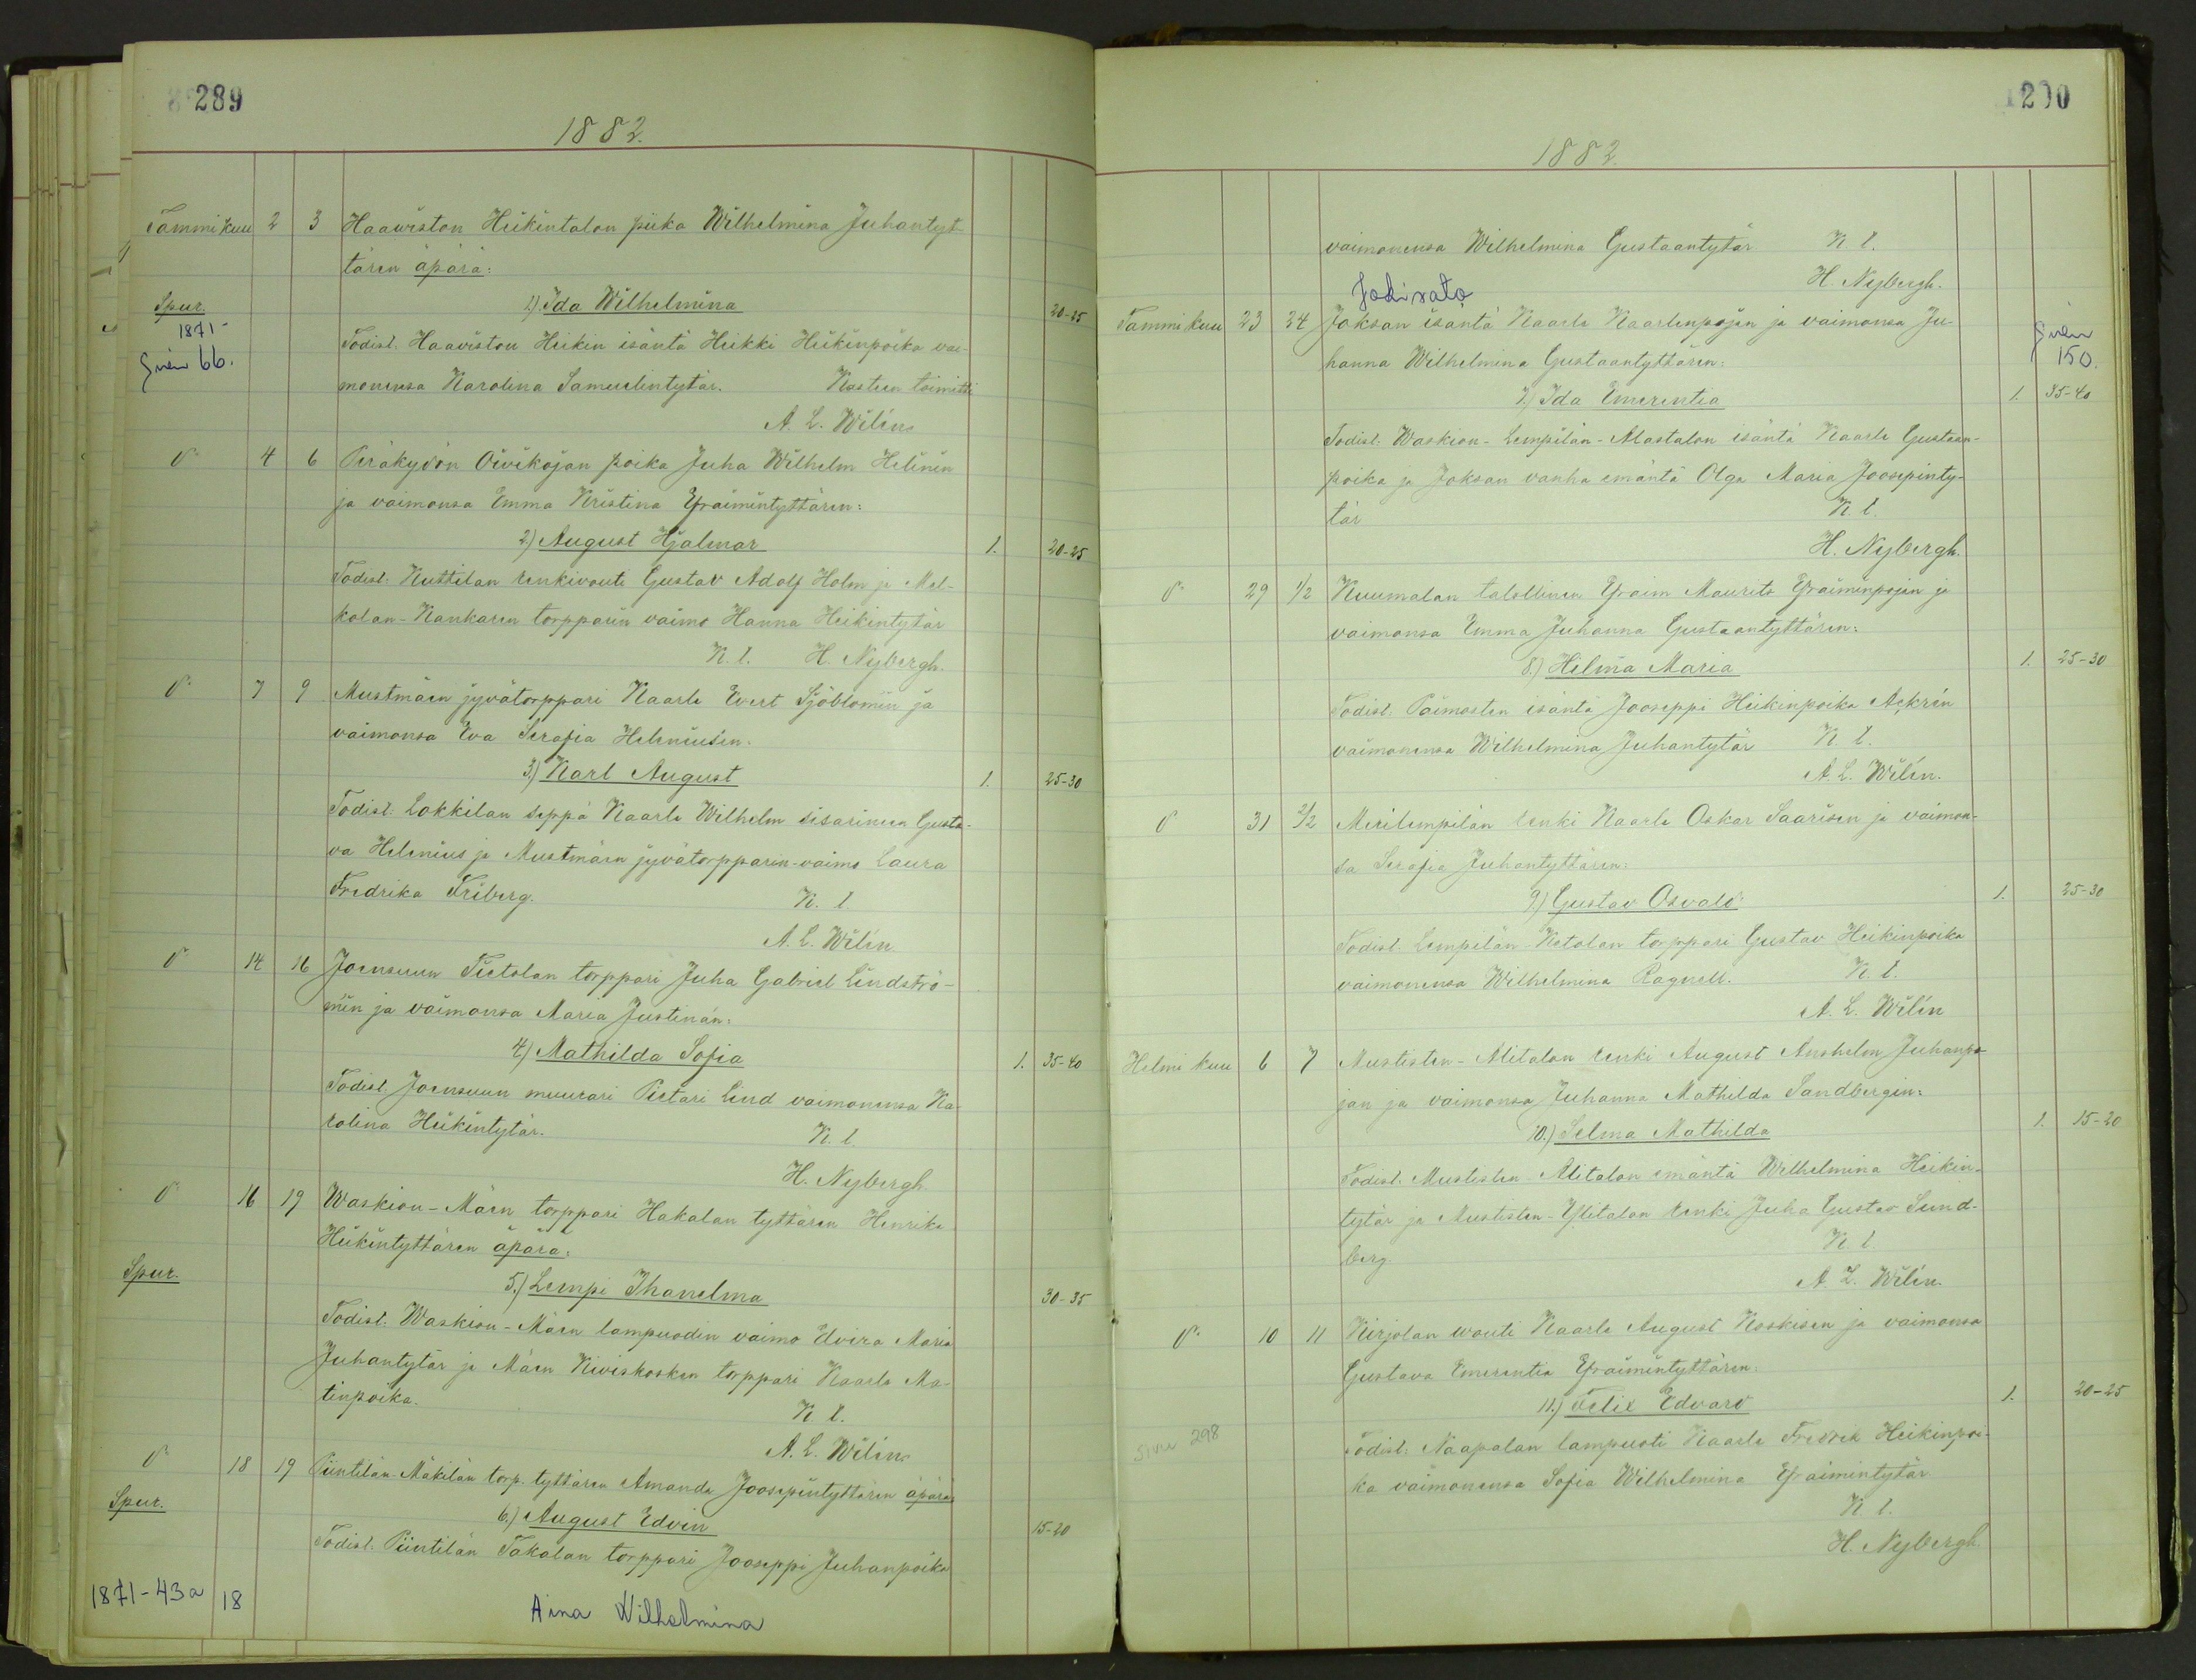 289
1882.
Tammikuu 2 3 Haawiston Heikintalon piika Wilhelmina Juhantyt-
tären äpärä:
Spur. 1) Ida Wilhelmina 20-25
1871-
Todist. Haaviston Heikin isäntä Heikki Heikinpoika vai-
Sivu 66.
monensa Karolina Samuelintytär. Kasteen toimitti
A. L. Wilén
d:o 4 6 Peräkydön Oivikojan poika Juha Wilhelm Helinin
ja vaimonsa Emma Kristina Efraimintyttären:
2) August Hjalmar 1. 20-25
Todist. Kuttilan renkivouti Gustav Adolf Holm ja Mel-
kolan-Kankaren torpparin vaimo Hanna Heikintytär
K. t. H. Nybergh.
d:o 7 9 Mustmäen jyvätorppari Kaarle Evert Sjöblomin ja
vaimonsa Eva Serafia Heleniusen.
3.) Karl August 1. 25-30
Todist. Lokkilan seppä Kaarle Wilhelm sisarineen Gusta-
va Helenius ja Mustmäen jyvätorpparin-vaimo Laura
Fredrika Friberg. K. t
A. L. Wilén
d:o 14 16 Joensuun Tietolan torppari Juha Gabriel Lindströ-
min ja vaimonsa Maria Justinan:
4) Mathilda Sofia 1. 35-40
Todist. Joensuun muurari Pietari Lind vaimonensa Ka-
rolina Heikintytär. K. t.
H. Nybergh
d:o 16 19 Waskion-Mäen torppari Hakalan tyttären Henrika
Heikintyttären äpärä:
Spur.
5.) Lempi Ihanelma 30-35
Todist. Waskion-Mäen lampuodin vaimo Edvira Maria
Juhantytär ja Mäen Kiviskosken torppari Kaarle Ma-
tinpoika. K. t.
A. L. Wilén
d:o 18 19 Piintilän-Mäkilän torp. tyttären Amanda Joosepintyttären äpärä
Spur. 6.) August Edvin 15-20
Todist. Piintilän Takalan torppari Jooseppi Juhanpoika
1871-43a 18 Aina Wilhelmina
290
1882
vaimonensa Wilhelmina Gustaantytär K t.
H. Nybergh.
Jokisato
Tammikuu 23 24 Joksan isäntä Kaarle Kaarlenpojan ja vaimonsa Ju-
Sivu
150.
hanna Wilhelmina Gustaantyttären:
7.) Ida Emerentia 1. 35-40
Todist. Waskion-Lempilän-Alastalon isäntä Kaarle Gustaan-
poika ja Joksan vanha emäntä Olga Maria Joosepinty-
tär K. t.
H. Nybergh.
d:o 29 1/2 Kuumalan talollinen Efraim Maurits Efraiminpojan ja
vaimonsa Emma Juhanna Gustaantyttären:
8.) Helma Maria 1. 25-30
Todist. Paimosten isäntä Jooseppi Heikinpoika Ackrén
vaimonensa Wilhelmina Juhantytär K. t.
A. L. Wilén.
d:o 31 2/2 Merilempilän renki Kaarle Oskar Saarisen ja vaimon-
sa Serafia Juhantyttären:
9) Gustav Osvald 1. 25-30
Todist. Lempilän Ketolan torppari Gustav Heikinpoika
vaimonensa Wilhelmina Ragnell. K. t.
A. L. Wilén
Helmikuu 6 7 Mustisten-Alitalon renki August Anshelm Juhanpo-
jan ja vaimonsa Juhanna Mathilda Sandbergin:
10.) Selma Mathilda 1. 15-20
Todist. Mustisten Alitalon emäntä Wilhelmina Heikin-
tytär ja Mustisten-Ylitalon renki Juha Gustav Sund-
berg. K. t
A. L. Wilén.
d:o 10 11 Kirjolan vouti Kaarle August Koskisen ja vaimonsa
Gustava Emerentia Efraimintyttären:
11.) Felix Edvard 1. 20-25
sivu 298
Todist. Naapalan lampuoti Kaarle Fredrik Heikinpoi-
ka vaimonensa Sofia Wilhelmina Efraimintytär
K t.
H. Nybergh